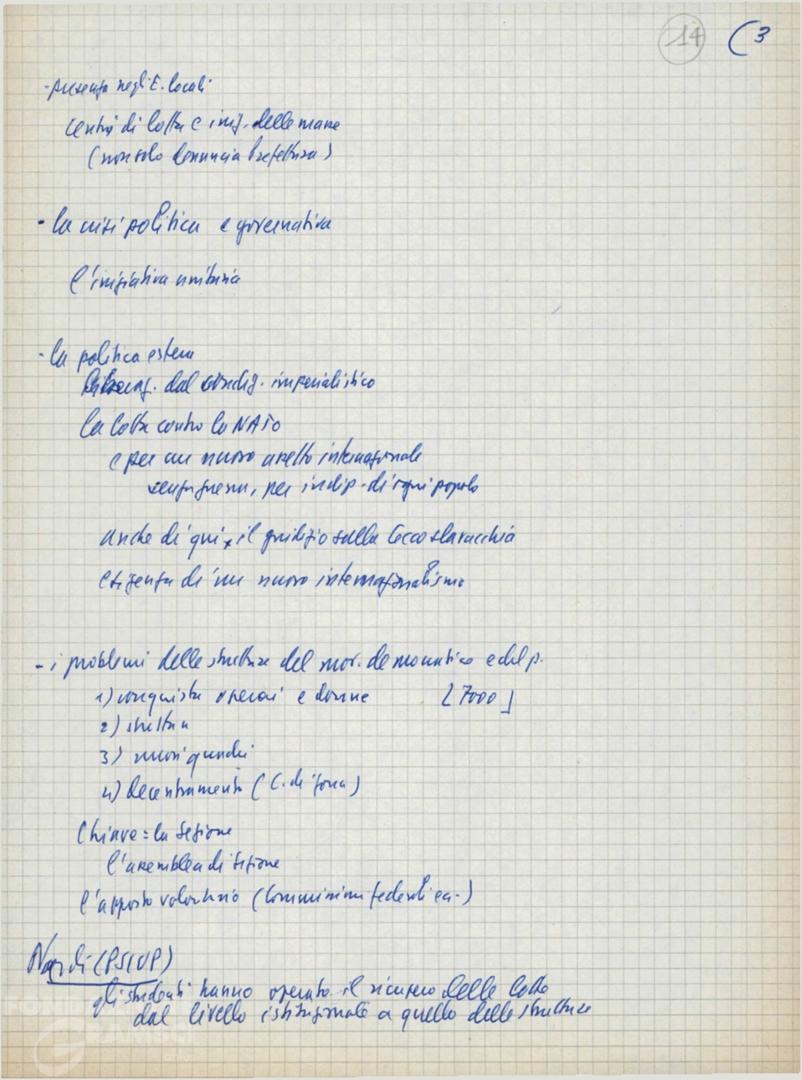 14 (3
- presenza negli E. locali
centri di lotta e iniz. delle masse
(non solo denuncia Prefettura)
- la crisi politica e governativa
l'iniziativa unitaria
- la politica estera
dal imperialistico
la lotta contro la NATO
e per un nuovo assetto internazionale
senza guerra, per indip. di ogni popolo
anche di qui il giudizio sulla Cecoslovacchia
esigenza di un nuovo internazionalismo
- i problemi delle strutture del mov. democratico e del p.
1) conquista operai e donne [7000]
2) struttura
3) nuovi quadri
4) decentramento (C. di zona)
Chiave = la sezione
l'assemblea di sezione
l'apporto volontario (Commissioni federali ecc.)
Nardi (PSIUP)
gli studenti hanno operato il delle lotte
dal livello istituzionale a quello delle strutture